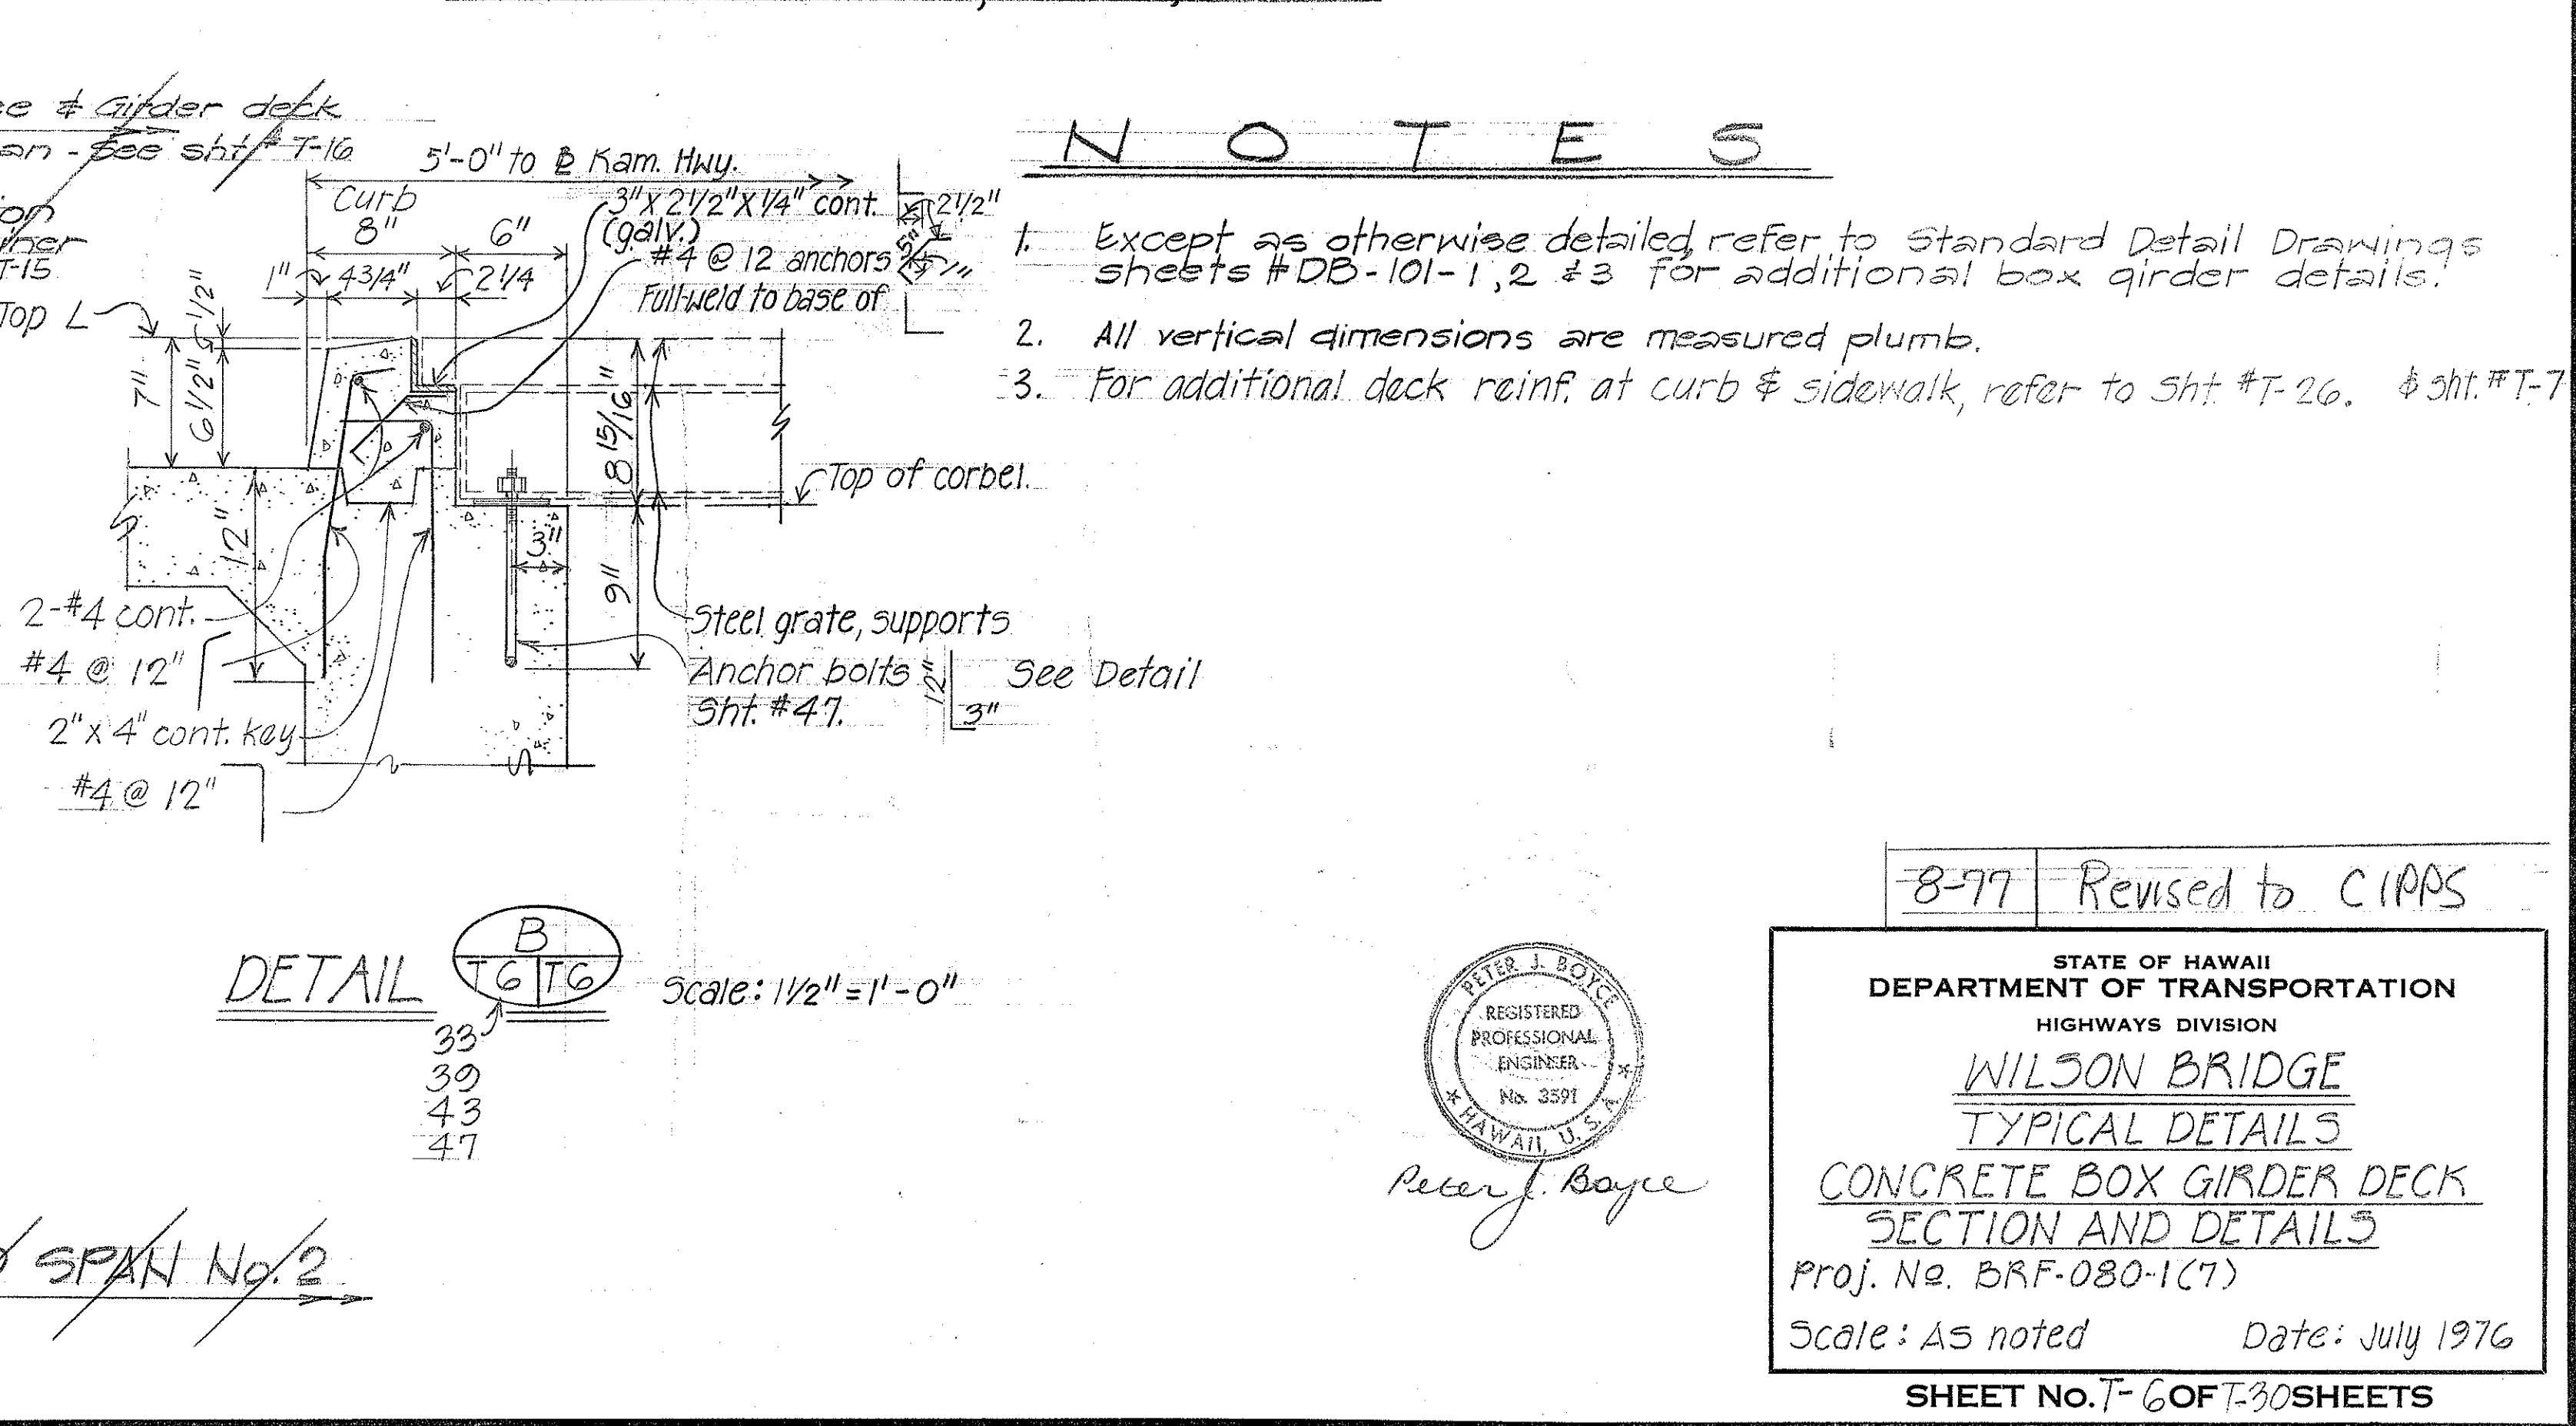 & Girder deck
See sht # T-16
T-15
Top L
5'-0" to ⅊ Kam. Hwy.
Curb
8"
6"
1"
4 3/4"
2 1/4
3" X 2 1/2" X 1/4" cont.
(galv.)
#4 @ 12 anchors
Full-weld to base of
2 1/2"
5"
1"
1/2"
7"
6 1/2"
8 15/16"
12"
3"
9"
Top of corbel.
2-#4 cont.
#4 @ 12"
2" x 4" cont. key
#4 @ 12"
Steel grate, supports
Anchor bolts
Sht. #47.
12"
3"
See Detail
DETAIL
B
T6 T6
Scale: 1 1/2" = 1'-0"
33
39
43
47
SPAN No. 2
N O T E S
1. Except as otherwise detailed, refer to Standard Detail Drawings
sheets # DB-101-1, 2 & 3 for additional box girder details.
2. All vertical dimensions are measured plumb.
3. For additional deck reinf. at curb & sidewalk, refer to Sht. #T-26. & sht. # T-7
8-77 Revised to CIPPS
PETER J. BOYCE
REGISTERED
PROFESSIONAL
ENGINEER
No. 3591
HAWAII, U.S.A.
Peter J. Boyce
STATE OF HAWAII
DEPARTMENT OF TRANSPORTATION
HIGHWAYS DIVISION
WILSON BRIDGE
TYPICAL DETAILS
CONCRETE BOX GIRDER DECK
SECTION AND DETAILS
Proj. No. BRF-080-1(7)
Scale: As noted Date: July 1976
SHEET No. T-6 OF T-30 SHEETS